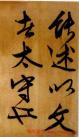 能述以文
者太守也